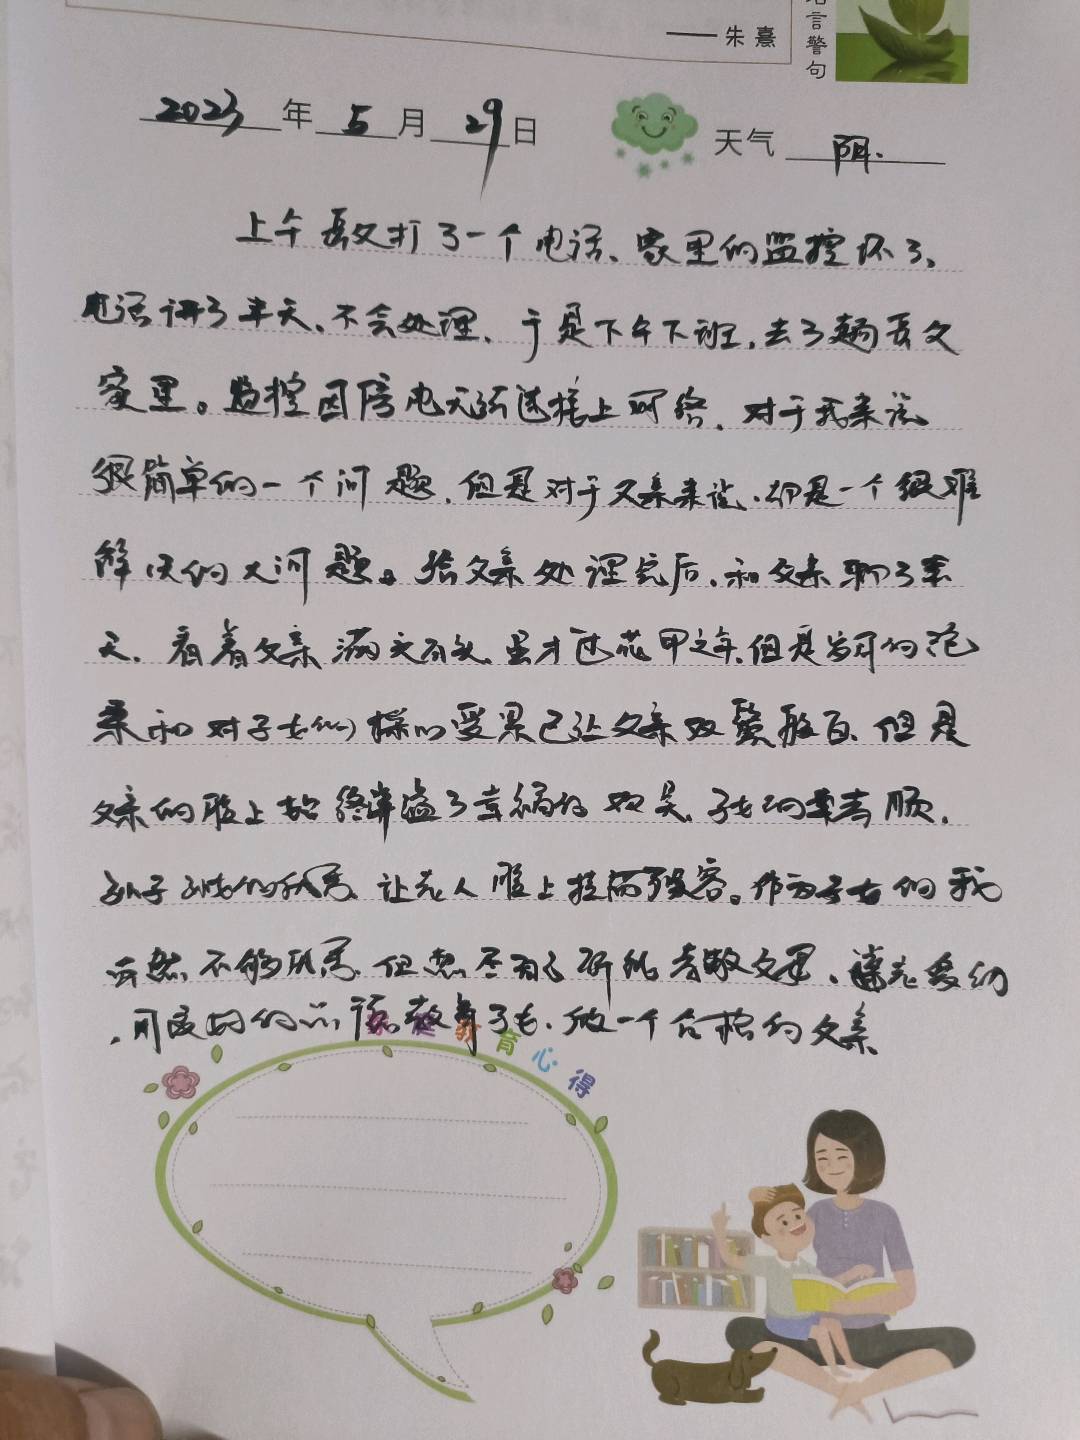 名言警句
——朱熹
2023年5月29日 天气 阴.
上午岳父打了一个电话、家里的监控坏了、
电话讲了半天、不会处理、于是下午下班,去了趟岳父
家里。监控因停电无法连接上网络,对于我来说
很简单的一个问题,但是对于父亲来说、却是一个很难
解决的大问题。给父亲处理完后,和父亲聊了半
天、看着父亲满头白头、虽才过花甲之年、但是岁月的沧
桑和对子女们的爱果已让父亲双鬓斑白、但是
父亲的脸上始终洋溢了幸福的、子女的孝顺,
孙子让老人脸上挂满了笑容。作为子女的我
虽然不够优秀、但想尽自己所能孝敬父辈、
用良好的教育子女、做一个合格的父亲
家庭教育心得